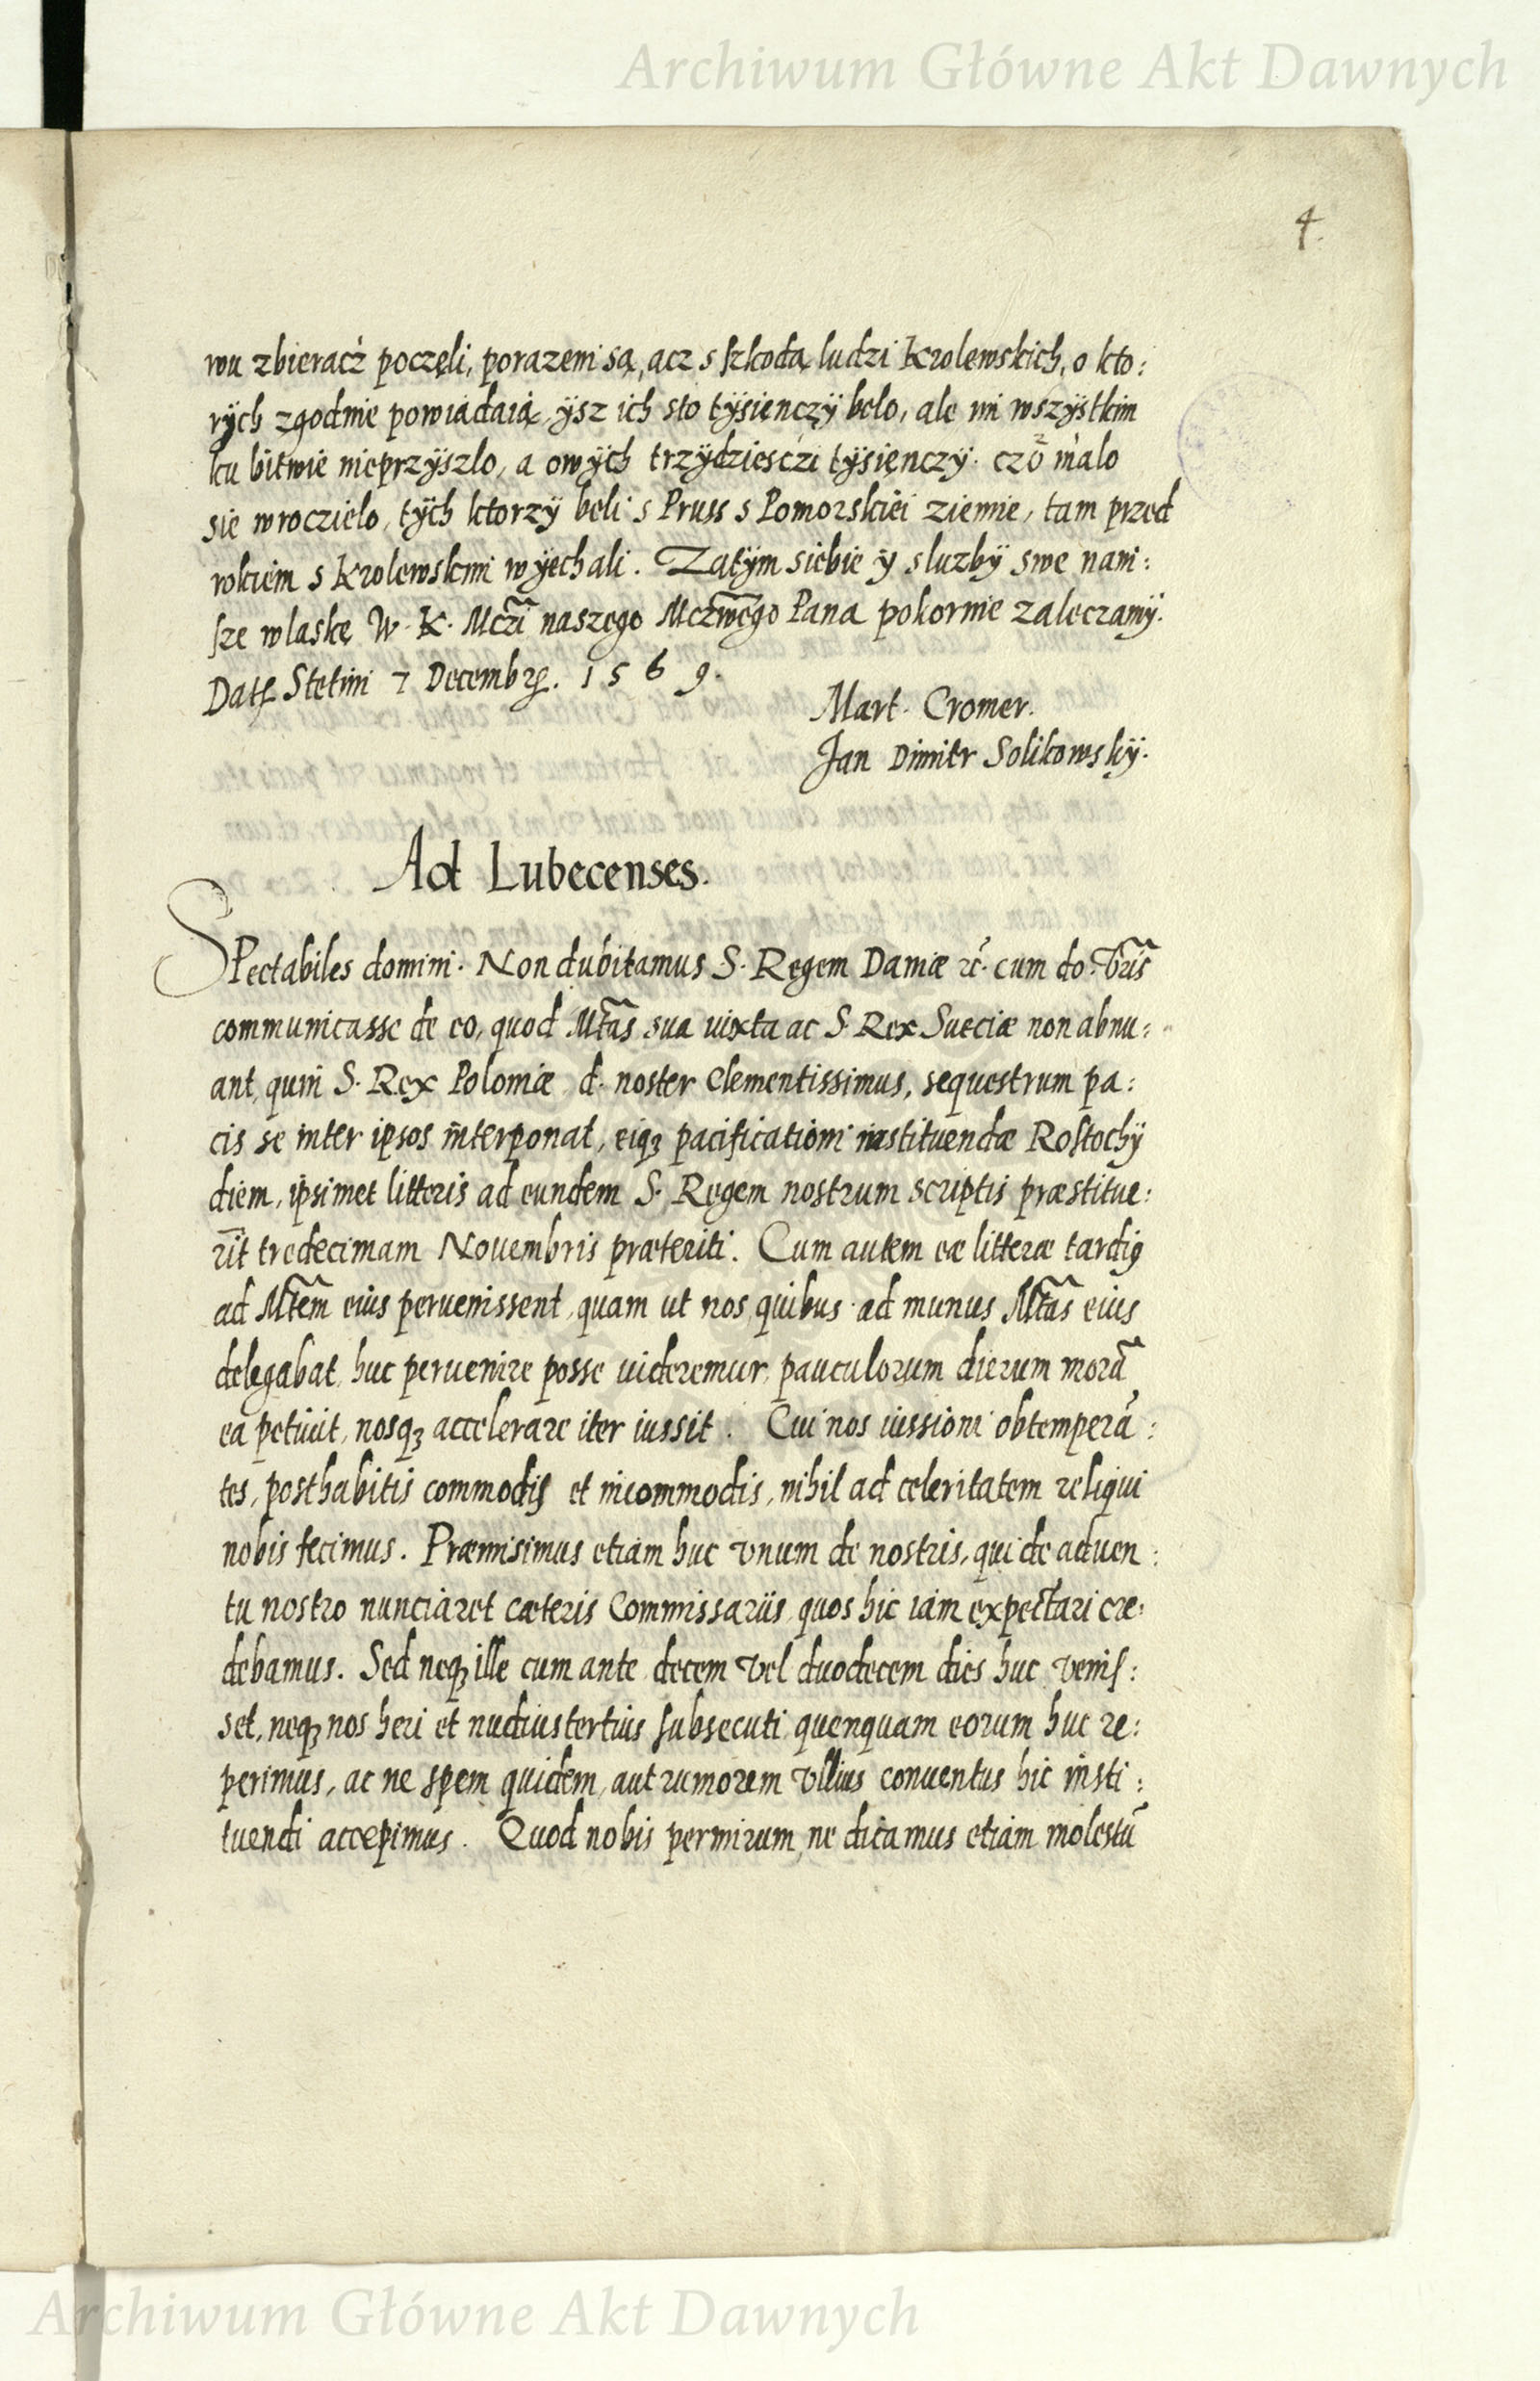 Archiwum Główne Akt Dawnych
4.
wu zbieracż poczęli, porazeni są, acz s szkodą ludzi Krolewskich, o kto:
rÿch zgodnie powiadaią, ÿsz ich sto tÿsienczÿ belo, ale ni wszÿstkim
ku bitwie nieprzÿszlo, a owÿch trzÿdziesczi tÿsięnczÿ czo malo
sie wroczielo, tÿch ktorzÿ beli s Pruss s Pomorskiei ziemie, tam przed
rokiem s Krolewskimi wÿechali. Zatÿm siebie ÿ sluzbÿ swe nani:
sze w laskę W. K. Mczi naszego Mczwego Pana pokornie zaleczamÿ.
Dat Stetini 7 Decembr. 1569.
Mart. Cromer.
Jan Dimitr Solikowskÿ.
Ad Lubecenses.
SPectabiles domini. Non dubitamus S. Regem Daniæ rc. cum do. vris
communicasse de eo, quod Mtas sua iuxta ac S. Rex Sueciæ non abnu:
ant, quin S. Rex Poloniæ d. noster Clementissimus, sequestrum pa:
cis se inter ipsos interponat, eiqz pacificationi instituendæ Rostochÿ
diem, ipsimet litteris ad eundem S. Regem nostrum scriptis præstitue:
rit tredecimam Nouembris præteriti. Cum autem eæ litteræ tardiꝰ
ad Mtem eius peruenissent, quam ut nos quibus ad munus Mtas eius
delegabat, huc peruenire posse uideremur, pauculorum dierum morā
ea petiuit, nosqz accelerare iter iussit. Cui nos iussioni obtemperā:
tes, posthabitis commodis et incommodis, nihil ad celeritatem reliqui
nobis fecimus. Præmisimus etiam huc vnum de nostris, qui de aduen:
tu nostro nunciaret cæteris Commissariis, quos hic iam expectari cre:
debamus. Sed neqz ille cum ante decem vel duodecem dies huc venis:
set, neqz nos heri et nudiustertius subsecuti quenquam eorum huc re:
perimus, ac ne spem quidem, aut rumorem vllius conuentus hic insti:
tuendi accepimus. Quod nobis permirum, ne dicamus etiam molestū
Archiwum Główne Akt Dawnych